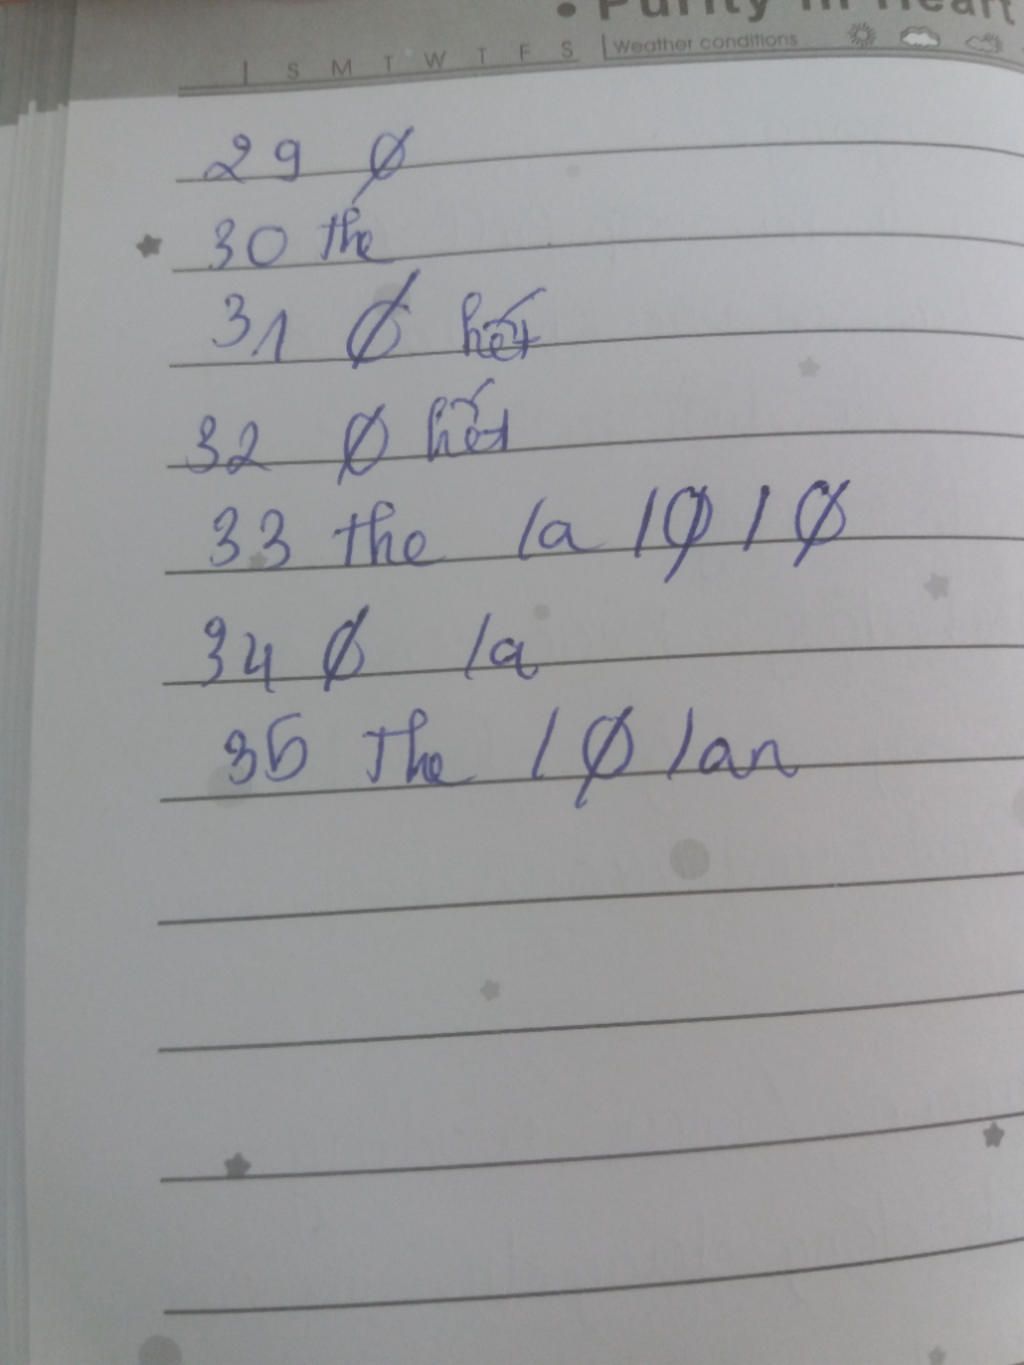 • Purity in Heart
S M T W T F S Weather conditions
29 Ø
30 the
31 Ø hết
32 Ø hết
33 the / a / Ø / Ø
34 Ø / a
35 The / Ø / an